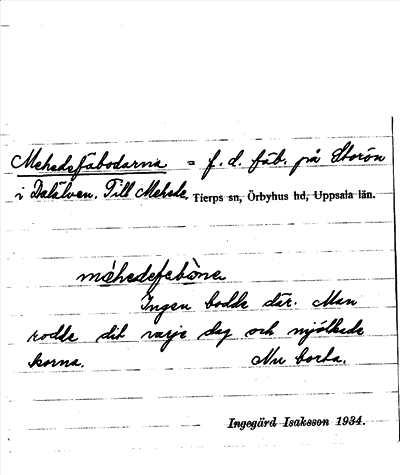 Mehedefäbodarna = f. d. fäb. på Storön
i Dalälven. Till Mehede. Tierps sn, Örbyhus hd, Uppsala län.
méhedefebòna
Ingen bodde där. Man
rodde dit varje dag och mjölkade
korna. Nu borta.
Ingegärd Isaksson 1934.